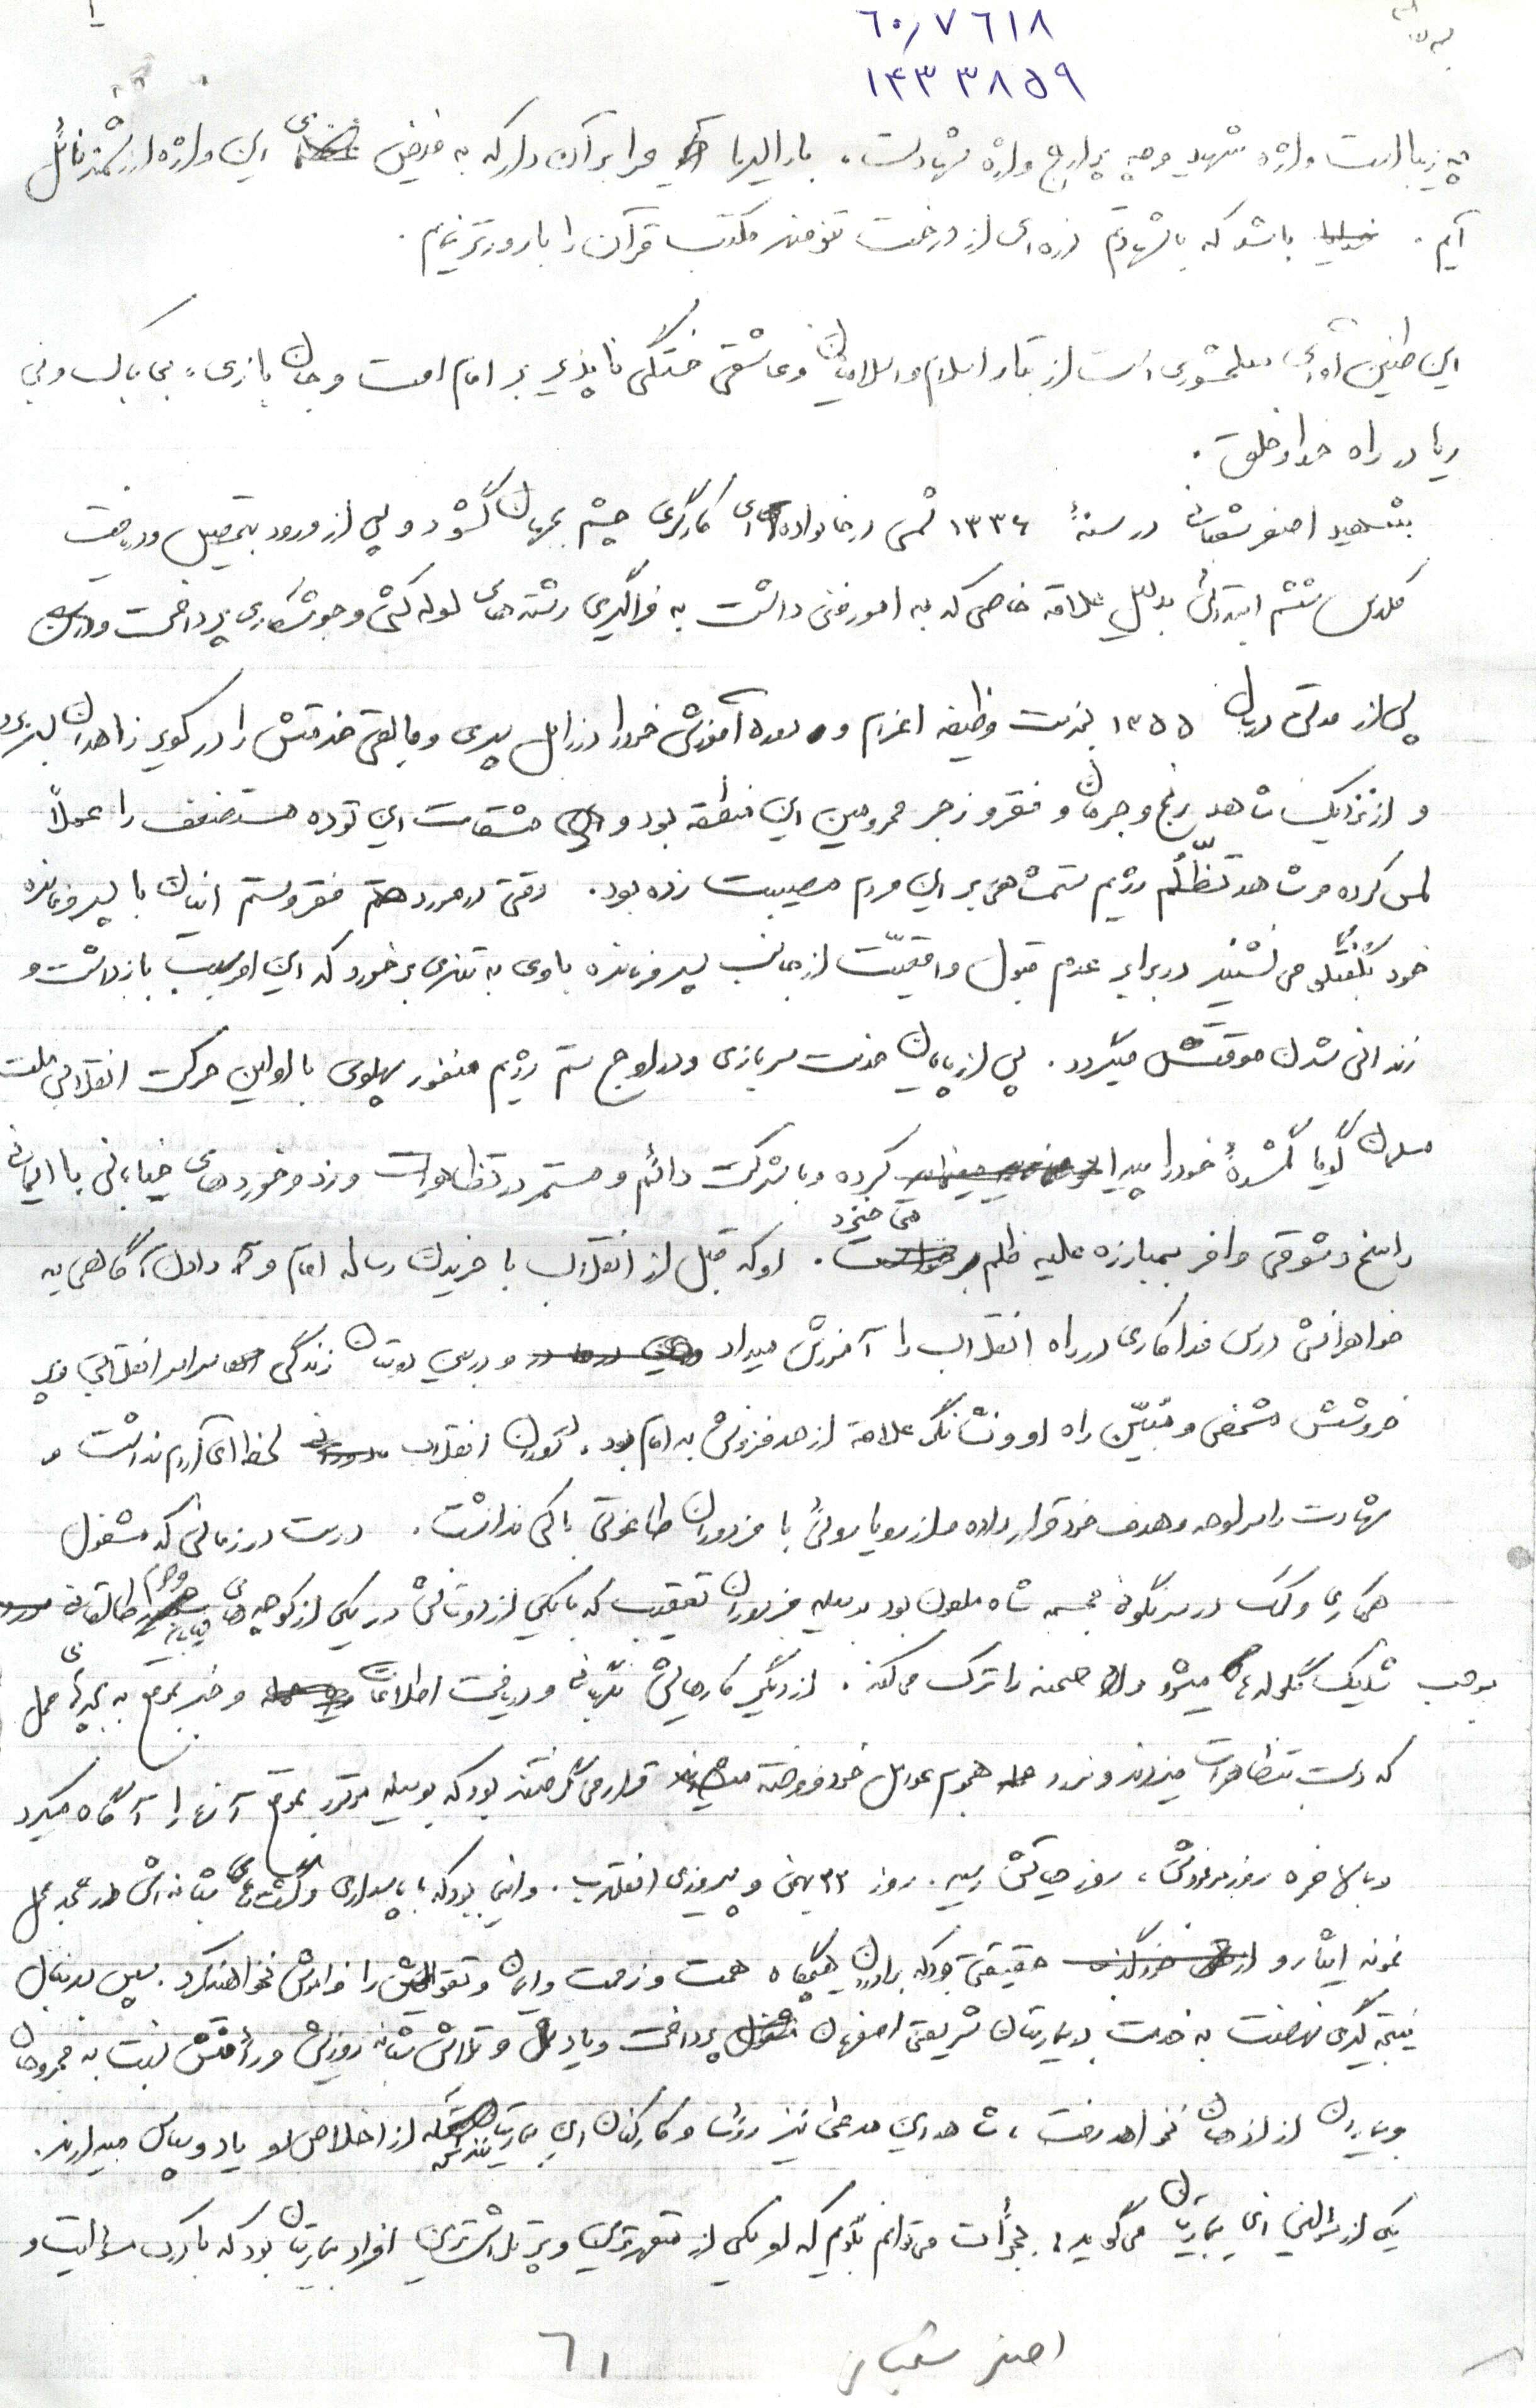 ۶۰٫۷۶۱۸
۱۴۳۳۸۵۹
چه زیباست واژه شهید و چه پر ارج واژه شهادت، بارالها مرا بر آن دار که به فیض این واژه ارزشمند نائل
آیم. باشد که با شهادتم ذره‌ای از درخت تنومند مکتب قرآن را بارورتر نمایم.
این طنین آوای سلحشوری است از تبار اسلام و عاشقی خستگی ناپذیر بر امام امت و جان بازی، بی باک و بی
ریا در راه خدا و خلق.
شهید اصغر شعبانی در سنهٔ ۱۳۳۶ شمسی در خانواده‌ای کارگری چشم بجهان گشود و پس از ورود بتحصیل و دریافت
مدرک ششم ابتدائی بدلیل علاقه خاصی که به امور فنی داشت به فراگیری رشته‌های لوله کشی و جوشکاری پرداخت
پس از مدتی در سال ۱۳۵۵ بخدمت وظیفه اعزام و دوره آموزش خود را در زابل سپری و مابقی خدمتش را در کویر زاهدان بسر برد
و از نزدیک شاهد رنج و حرمان و فقر و زجر محرومین این منطقه بود و مشقات این توده مستضعف را عملاً
لمس کرده و شاهد تظلّم رژیم ستمشاهی بر این مردم مصیبت زده بود. وقتی در مورد فقر و ستم اینان با سپر فرمانده
خود بگفتگو می نشیند در برابر عدم قبول واقعیّت از جانب فرمانده با وی به تندی برخورد که این امر سبب بازداشت و
زندانی شدن موقتش میگردد. پس از پایان خدمت سربازی و در اوج ستم رژیم منفور پهلوی با اولین حرکت انقلابی ملت
مسلمان گویا گمشدهٔ خود را پیدا کرده و با شرکت دائم و مستمر در تظاهرات و زد و خوردهای خیابانی با ایمانی
راسخ و شوقی وافر بمبارزه علیه ظلم بر می خیزد. او که قبل از انقلاب با خریدن رساله امام و دادن آگاهی به
خواهرانش درس فداکاری در راه انقلاب را آموزش میداد و در بین دوستان زندگی سراسر انقلابی و پر
خروشش مشخص و مُبیّن راه او و نشانگر علاقه از حد فزونش به امام بود. دوران انقلاب لحظه‌ای آرام نداشت و
شهادت را سرلوحه و هدف خود قرار داده و از رویاروئی با مزدوران طاغوتی باکی نداشت. درست در زمانی که مشغول
همکاری و کمک در سرنگونی مجسمه شاه ملعون بود بوسیله مزدوران تعقیب که با یکی از دوستانش در یکی از کوچه‌های خیابان طالقانی
موجب شلیک گلوله میشود و صحنه را ترک می‌کند. از دیگر کارهایش نگهبانی و دریافت اطلاعات و خبر بموقع به بچه‌های محل
که دست بتظاهرات میزدند و مورد هجوم عوامل خود فروخته قرار می‌گرفتند بود که بوسیله موتور بموقع آنها را آگاه میکرد
و بالاخره روز موعودش، روز حیاتش رسید. روز ۲۲ بهمن و پیروزی انقلاب. و این بود که با پاسداری و گشت‌های شبانه‌اش در محل
نمونه ایثار و حقیقتی بود که یاران هیچگاه همت و زحمت و ایمان و تقوایش را فراموش نخواهند کرد. سپس بدنبال
نتیجه گیری نهضت به خدمت در بیمارستان شریعتی اصفهان پرداخت و یاد و تلاش شبانه روزیش و رأفتش نسبت به مجروحان
و بیماران از اذهان نخواهد رفت، شاهد این مدعی نیز رؤسا و کارکنان این بیمارستان که از اخلاص او یاد و سپاس میدارند.
یکی از مسئولین این بیمارستان می‌گوید: بجرأت می‌توانم بگویم که او یکی از متعهدترین و پرتلاشترین افراد بیمارستان بود که با درک مسئولیت و
اصغر شعبانی ۶۱